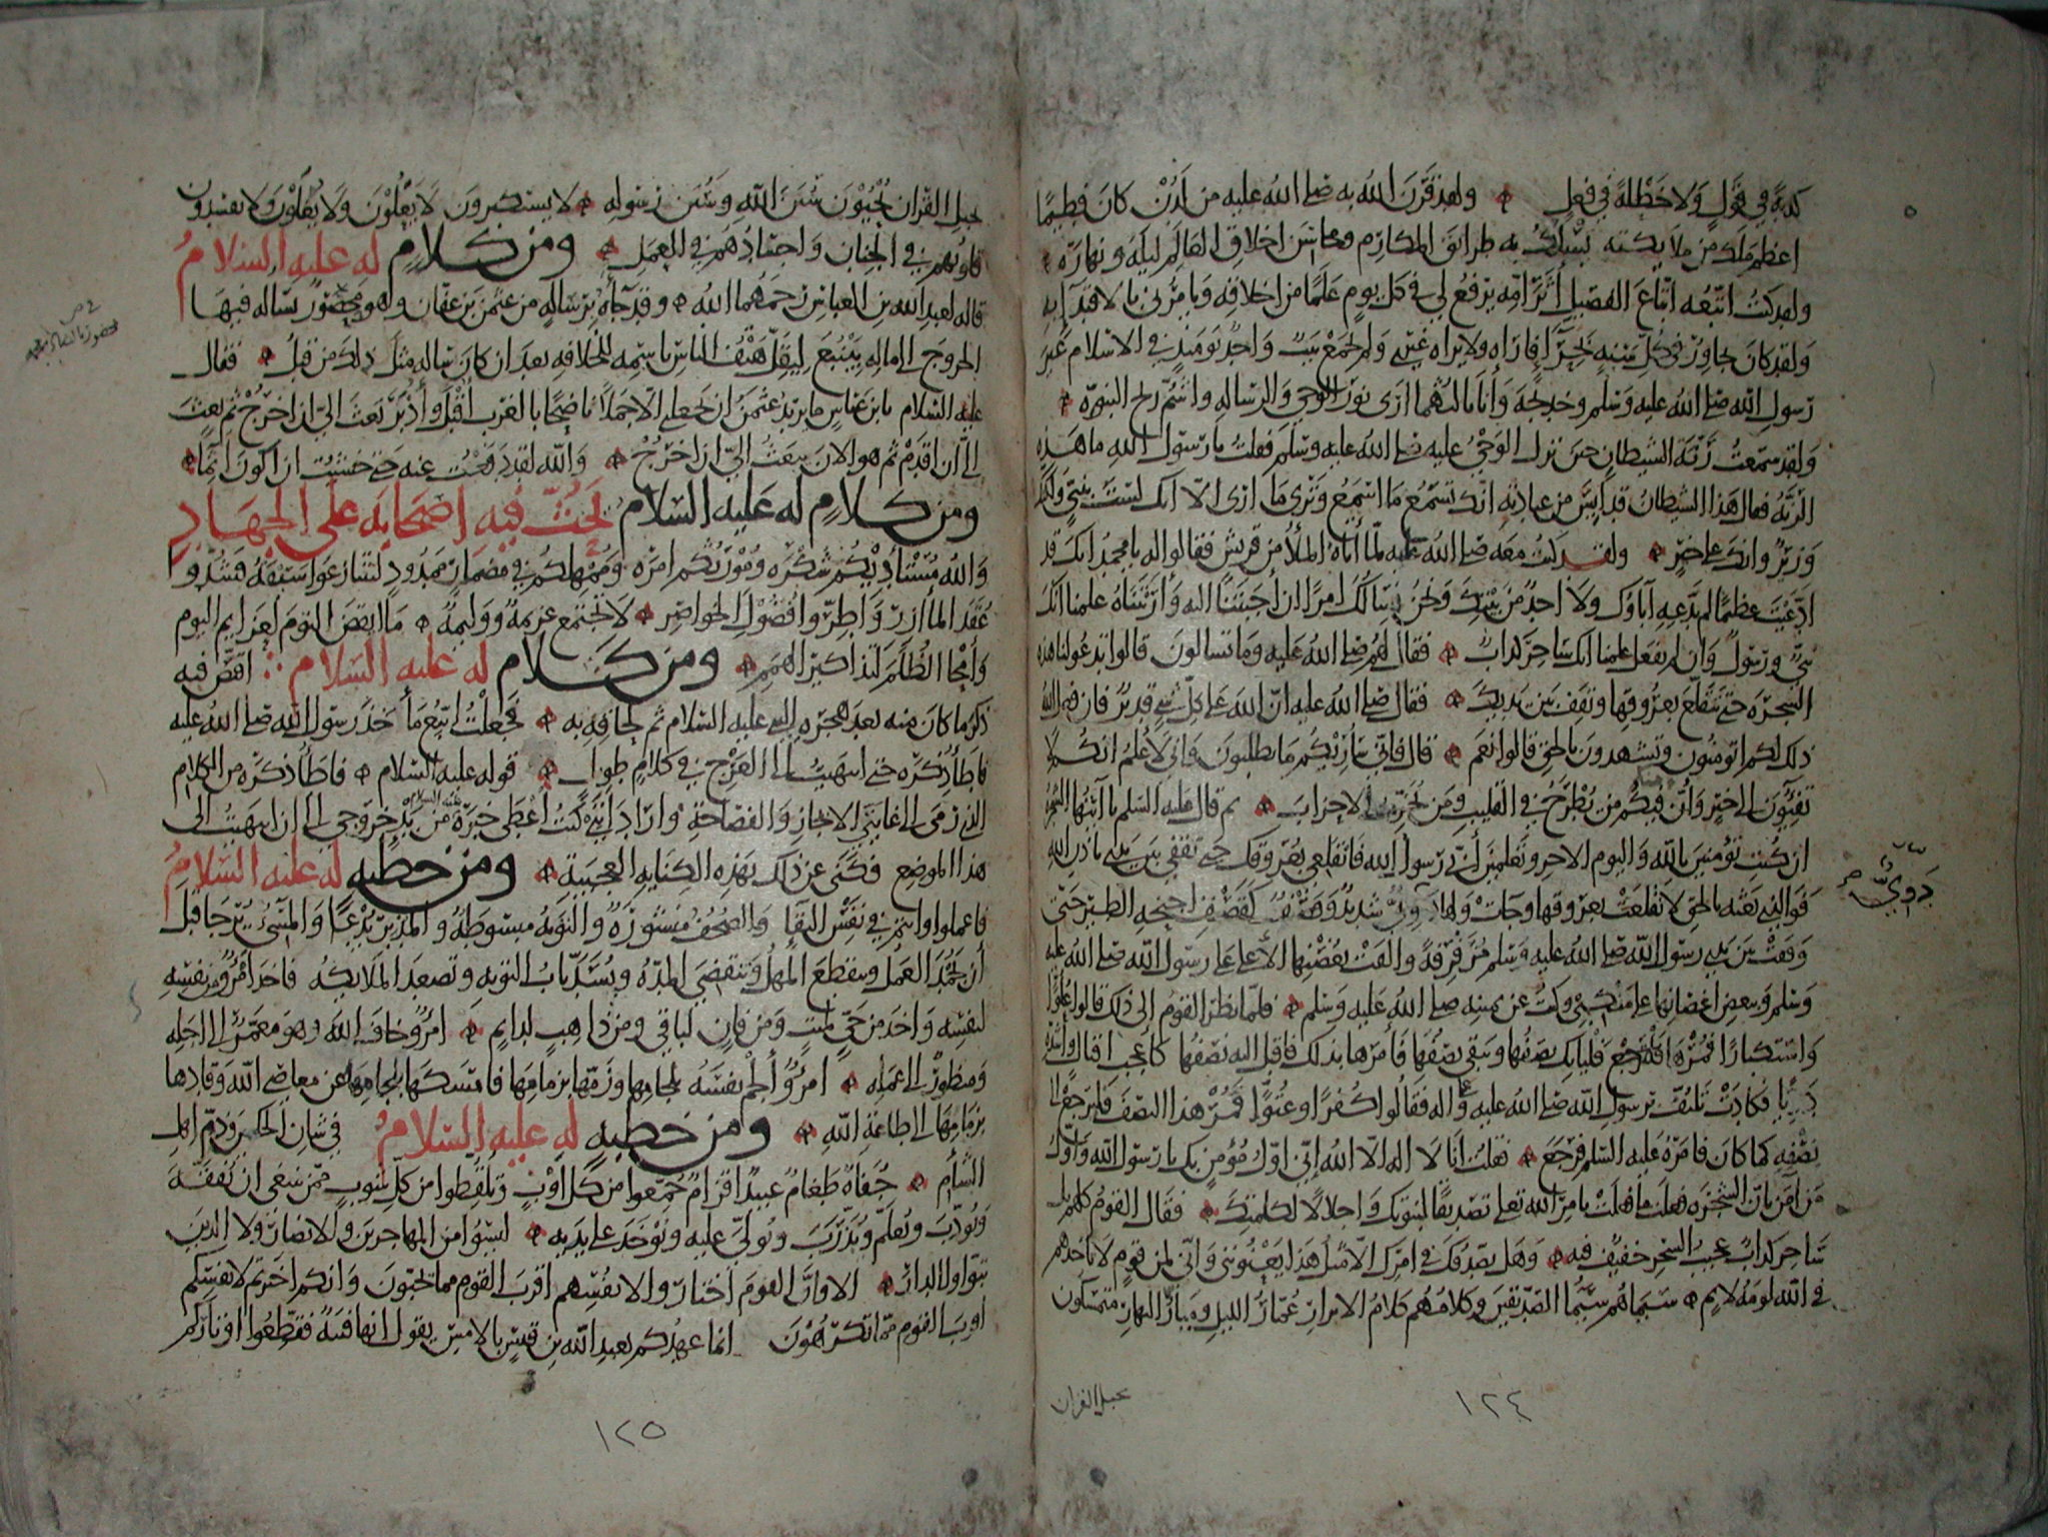 كذبة في قول ولا خطلة في فعل ولقد قرن الله به صلى الله عليه من لدن كان فطيما
اعظم ملك من ملايكته يسلك به طرائق المكارم ومحاسن اخلاق العالم ليله ونهاره
ولقد كنت اتبعه اتباع الفصيل أثر امه يرفع لي في كل يوم علما من اخلاقه ويامرني بالاقتدآ به
ولقد كان يجاور في كل سنة بحرآ فاراه ولا يراه غيري ولم يجمع بيت واحد يومئذ في الاسلام غير
رسول الله صلى الله عليه وسلم وخديجة وأنا ثالثهما ارى نور الوحي والرساله واشم ريح النبوه
ولقد سمعت رنة الشيطان حين نزل الوحي عليه صلى الله عليه وسلم فقلت يا رسول الله ما هذه
الرنه فقال هذا الشيطان قد أيس من عبادته انك تسمع ما اسمع وترى ما ارى الا انك لست بنبي ولكنك
وزير وانك على خير ولقد كنت معه صلى الله عليه لما أتاه الملأ من قريش فقالوا له يا محمد انك قد
ادعيت عظيما لم يدعه آباؤك ولا احد من بيتك ونحن نسالك امرا ان أجبتنا اليه وأريتناه علمنا انك
نبي ورسول وان لم تفعل علمنا انك ساحر كذاب فقال لهم صلى الله عليه وما تسالون قالوا تدعو لنا هذه
الشجره حتى تنقلع بعروقها وتقف بين يديك فقال صلى الله عليه ان الله على كل شي قدير فان فعل الله
ذلك لكم اتومنون وتشهدون بالحق قالوا نعم قال فاني ساريكم ما تطلبون واني لأعلم انكم لا
تفيئون الى خير وأن فيكم من يطرح في القليب ومن يحزب الاحزاب ثم قال عليه السلم يا أيتها الشجره
ان كنت تؤمنين بالله واليوم الاخر وتعلمين أني رسول الله فانقلعي بعروقك حتى تقفي بين يدي باذن الله
فوالذي بعثه بالحق لانقلعت بعروقها وجات ولها دوي شديد وقصف كقصف اجنحه الطير حتى
دوي
وقفت بين يدي رسول الله صلى الله عليه وسلم مرفرفة والقت بغصنها الأعلى على رسول الله صلى الله عليه
وسلم وببعض اغصانها على منكبي وكنت عن يمينه صلى الله عليه وسلم فلما نظر القوم الى ذلك قالوا علوا
واستكبارا فمرها فلياتك نصفها ويبقى نصفها فأمرها بذلك فاقبل اليه نصفها كأعجب اقبال وأشده
دويا فكادت تلتف برسول الله صلى الله عليه وآله فقالوا كفرا وعتوا فمر هذا النصف فليرجع الى
نصفه كما كان فامره عليه السلم فرجع فقلت أنا لا اله الا الله اني اول مؤمن بك يا رسول الله وأول
من آمن بان الشجره فعلت ما فعلت بامر الله تعلى تصديقا لنبوتك واجلالا لكلمتك فقال القوم كلهم بل
ساحر كذاب عجيب السحر خفيف فيه وهل يصدقك في امرك الا مثل هذا يعنونني واني لمن قوم لا تأخذهم
في الله لومة لايم سيماهم سيما الصديقين وكلامهم كلام الابرار عمار الليل ومنار النهار متمسكون
بحبل القران
١٢٤
بحبل القران يحيون سنن الله وسنن رسوله لا يستكبرون لا يعلون ولا يغلون ولا يفسدون
قلوبهم في الجنان واجسادهم في العمل ومن كلام له عليه السلام
قاله لعبد الله بن العباس رحمهما الله وقد جآه برساله من عثمن بن عفان وهو محصور يساله فيها
الخروج الى ماله بينبع ليقل هتف الناس باسمه للخلافه بعد ان كان ساله مثل ذلك من قبل فقال
عليه السلام يا بن عباس ما يريد عثمن ان يجعلني الا جملا ناضحا بالغرب اقبل وأدبر بعث الي ان اخرج ثم بعث
الي أن اقدم ثم هو الان يبعث الي ان اخرج والله لقد دفعت عنه حتى خشيت ان اكون آثما
ومن كلام له عليه السلام يحث فيه اصحابه على الجهاد
والله مستأديكم شكره ومورثكم امره وممهلكم في مضمار ممدود لتتنازعوا سبقه فشدوا
عقد المأازر واطووا فضول الخواصر لا تجتمع عزيمة ووليمة ما انقض النوم لعزايم اليوم
وأمحا الظلم لتذاكير الهمم ومن كلام له عليه السلام اقتص فيه
ذكر ما كان منه بعد هجره النبي عليه السلام ثم لحاقه به فجعلت اتبع مأخذ رسول الله صلى الله عليه
فاطأ ذكره حتى انتهيت الى العرج في كلام طويل قوله عليه السلام فاطأ ذكره من الكلام
الذي رمى الى غايتي الايجاز والفصاحة واراد انني كنت أعطى خبره عليه السلام من بدء خروجي الى ان انتهيت الى
هذا الموضع فكنى عن ذلك بهذه الكنايه العجيبة ومن خطبه له عليه السلام
فاعملوا وانتم في نفس البقا والصحف منشورة والتوبة مبسوطة والمدبر يدعى والمسيء يرجا قبل
أن يخمد العمل وينقطع المهل وتنقضي المده ويسد باب التوبه وتصعد الملايكه فاخذ امرؤ من نفسه
لنفسه واخذ من حي لميت ومن فان لباقي ومن ذاهب لدايم امرؤ خاف الله وهو معمر الى اجله
ومنظور الى عمله امرؤ ألجم نفسه بلجامها وزمها بزمامها فامسكها بلجامها عن معاصي الله وقادها
بزمامها الى طاعة الله ومن خطبه له عليه السلام في شان الحكمين وذم اهل
الشأم جفاة طغام عبيد اقزام جمعوا من كل اوب وتلقطوا من كل شوب ممن ينبغي ان يفقه
ويؤدب ويعلم ويدرب ويولى عليه ويؤخذ على يديه ليسوا من المهاجرين والانصار ولا الذين
تبوأوا الدار الا وان القوم اختاروا لانفسهم اقرب القوم مما تحبون وانكم اخترتم لانفسكم
اقرب القوم مما تكرهون انما عهدكم بعبد الله بن قيس بالامس يقول انها فتنة فقطعوا اوتاركم
١٢٥